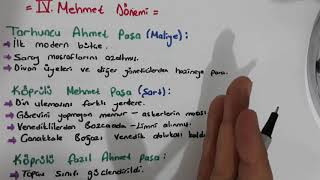 = IV. Mehmet Dönemi =
Tarhuncu Ahmet Paşa (Maliye) :
→ İlk modern bütçe.
→ Saray masraflarını azaltmış.
→ Divan üyeleri ve diğer yöneticilerden hazineye para.
Köprülü Mehmet Paşa (Şart) :
→ Din ulemasını farklı yerlere.
→ Görevini yapmayan memur - askerlerin maaşı
→ Venediklilerden Bozcaada - Limni alınmış.
→ Çanakkale Boğazı Venedik ablukası kaldı
Köprülü Fazıl Ahmet Paşa :
→ Topçu Sınıfı güçlendirildi.